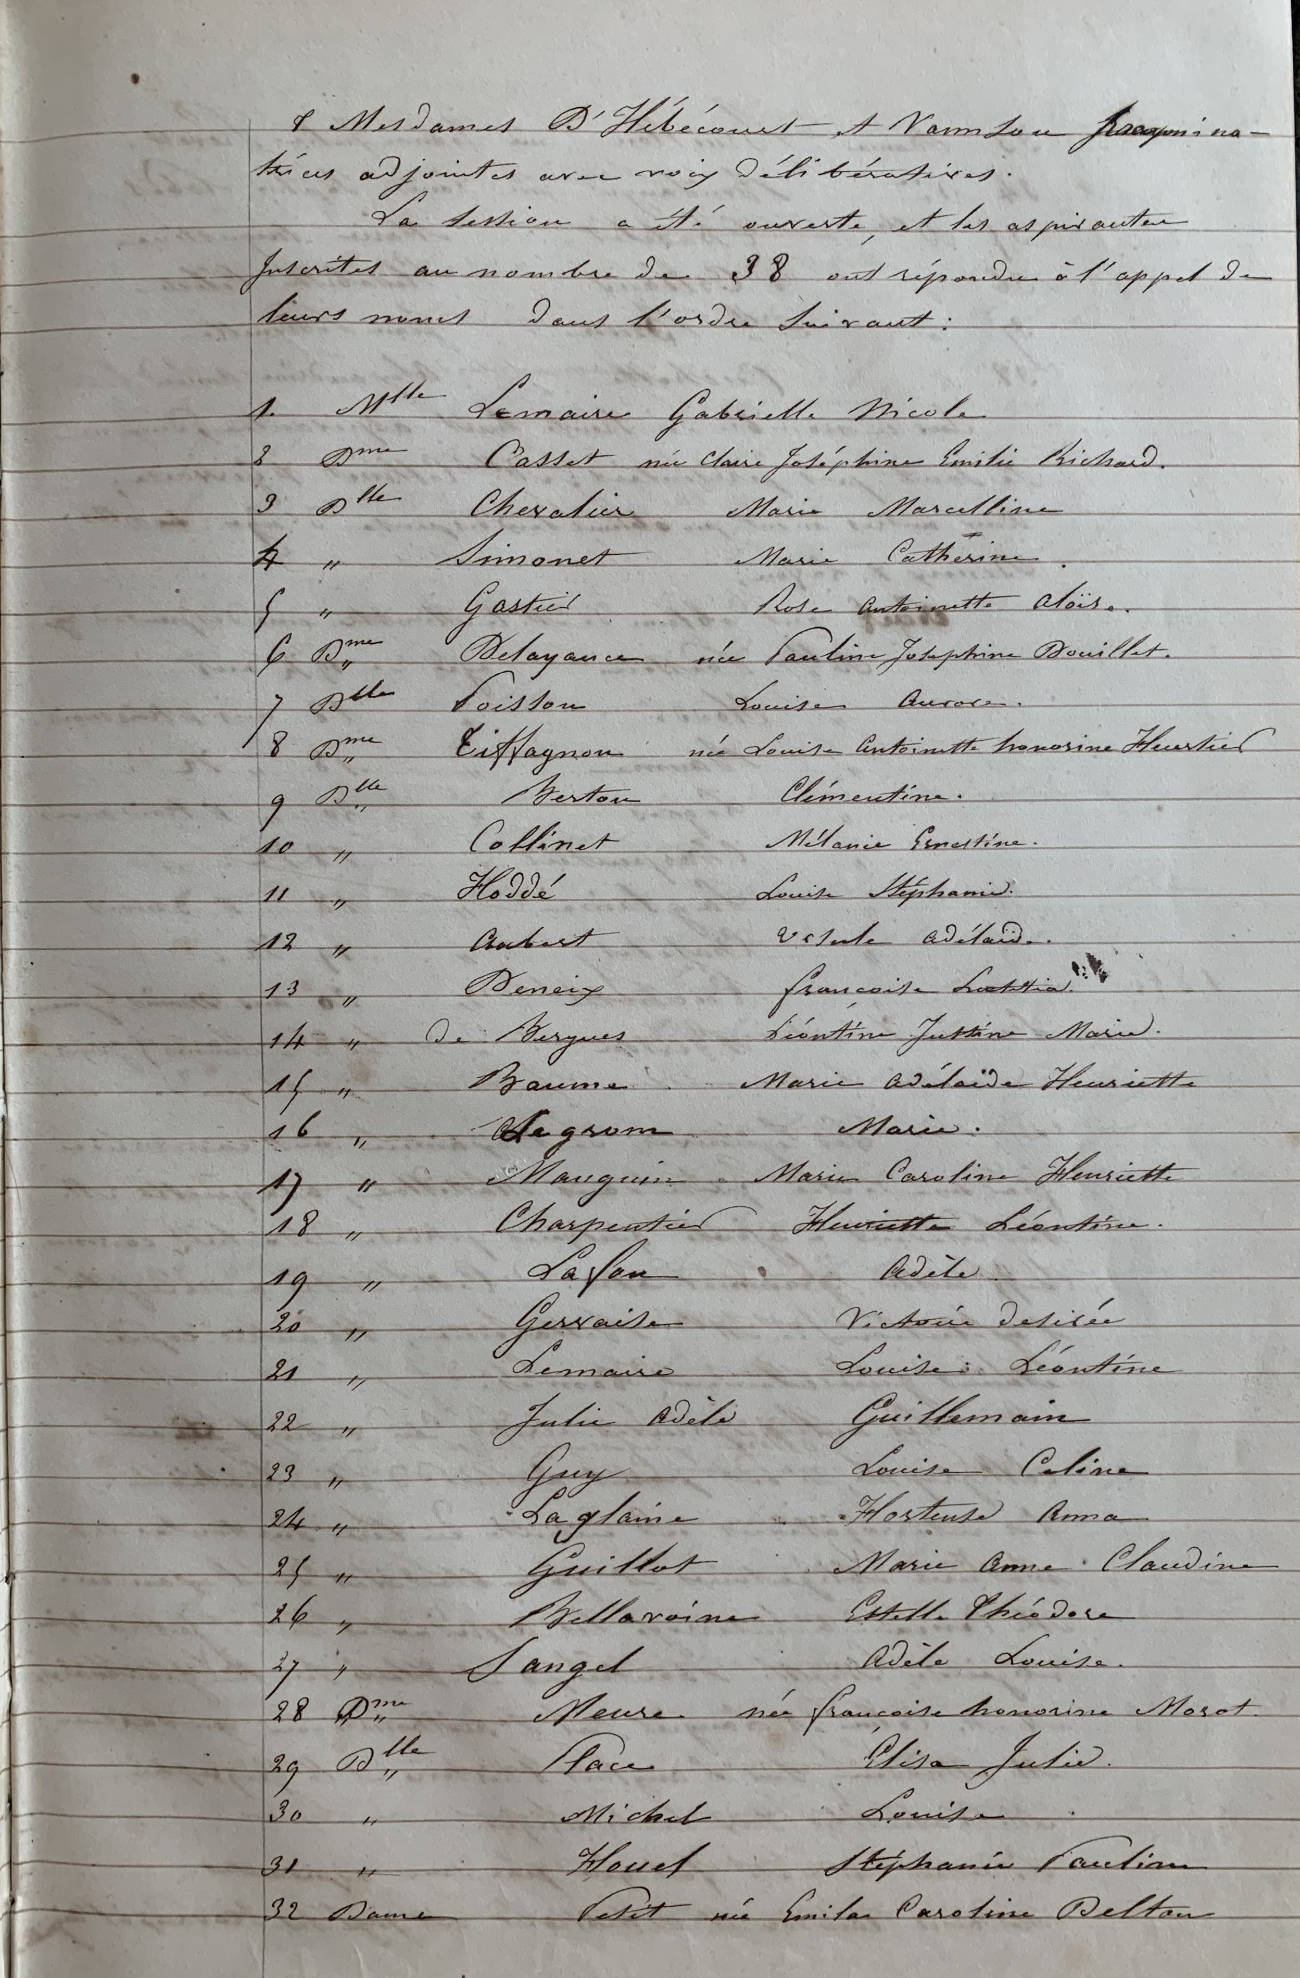 & Mesdames D'Hébécourt et Vannson Examina-
trices adjointes avec voix délibératives.
La session a été ouverte, et les aspirantes
Inscrites au nombre de 38 ont répondu à l'appel de
leurs noms dans l'ordre suivant :
1. Mlle Lemaire Gabrielle Nicole
2 Dme Casset née Claire Joséphine Emilie Richard.
3 Dlle Chevalier Marie Marcelline
4 " Simonet Marie Catherine.
5 " Gastier Rose Antoinette Aloïse.
6 Dme Delayance née Pauline Josephine Douillet.
7 Dlle Poisson Louise Aurore.
8 Dme Tiffagnon née Louise Antoinette honorine Heurtier
9 Dlle Berton Clémentine.
10 " Collinet Mélanie Ernestine.
11 " Hoddé Louise Stéphanie.
12 " Aubert Ursule Adélaïde.
13 " Deneix françoise Laetitia.
14 " de Bergues Léontine Justine Marie.
15 " Baume Marie Adélaïde Henriette
16 " Lagrom Marie.
17 " Mauguin Marie Caroline Henriette
18 " Charpentier Henriette Léontine.
19 " Lafon Adèle
20 " Gervaise Victoire desirée
21 " Lemaire Louise Léontine
22 " Julie Adèle Guillemain
23 " Guy Louise Celine
24 " Laglaine Hortense Anna
25 " Guillot Marie Anne Claudine
26 " Bellavoine Estelle Théodore
27 " Sangel Adèle Louise.
28 Dme Meure née françoise honorine Morot.
29 Dlle Place Élisa Julie.
30 " Michel Louise
31 " Houel Stéphanie Pauline
32 Dame Petit née Emila Caroline Delton